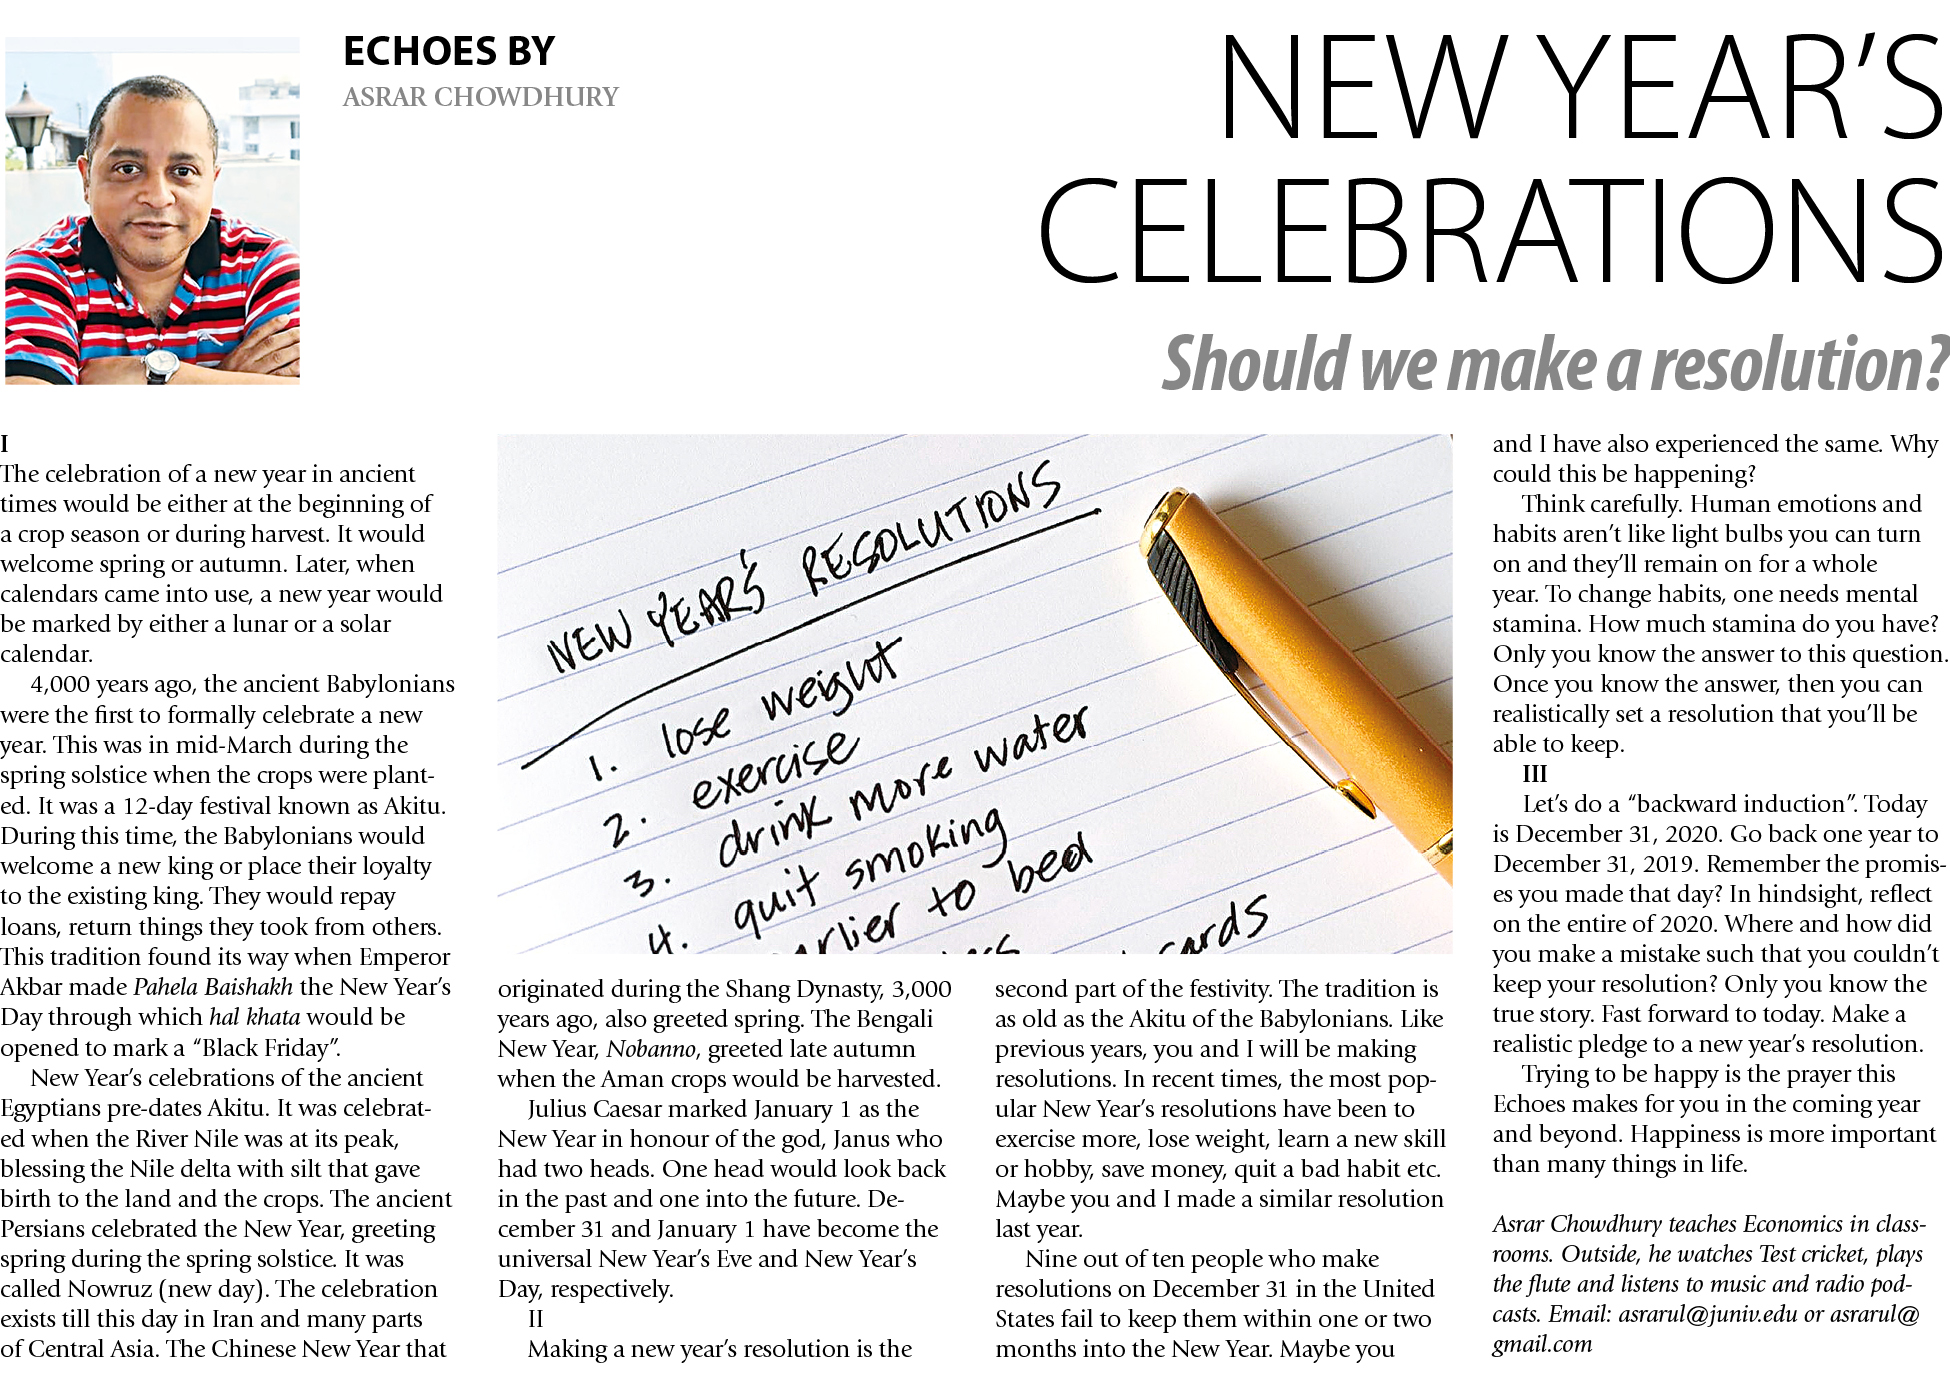 ECHOES BY
ASRAR CHOWDHURY
NEW YEAR’S
CELEBRATIONS
Should we make a resolution?
I
The celebration of a new year in ancient
times would be either at the beginning of
a crop season or during harvest. It would
welcome spring or autumn. Later, when
calendars came into use, a new year would
be marked by either a lunar or a solar
calendar.
4,000 years ago, the ancient Babylonians
were the first to formally celebrate a new
year. This was in mid-March during the
spring solstice when the crops were plant-
ed. It was a 12-day festival known as Akitu.
During this time, the Babylonians would
welcome a new king or place their loyalty
to the existing king. They would repay
loans, return things they took from others.
This tradition found its way when Emperor
Akbar made Pahela Baishakh the New Year’s
Day through which hal khata would be
opened to mark a “Black Friday”.
New Year’s celebrations of the ancient
Egyptians pre-dates Akitu. It was celebrat-
ed when the River Nile was at its peak,
blessing the Nile delta with silt that gave
birth to the land and the crops. The ancient
Persians celebrated the New Year, greeting
spring during the spring solstice. It was
called Nowruz (new day). The celebration
exists till this day in Iran and many parts
of Central Asia. The Chinese New Year that
NEW YEAR'S RESOLUTIONS
1. lose weight
2. exercise
3. drink more water
4. quit smoking
earlier to bed
cards
originated during the Shang Dynasty, 3,000
years ago, also greeted spring. The Bengali
New Year, Nobanno, greeted late autumn
when the Aman crops would be harvested.
Julius Caesar marked January 1 as the
New Year in honour of the god, Janus who
had two heads. One head would look back
in the past and one into the future. De-
cember 31 and January 1 have become the
universal New Year’s Eve and New Year’s
Day, respectively.
II
Making a new year’s resolution is the
second part of the festivity. The tradition is
as old as the Akitu of the Babylonians. Like
previous years, you and I will be making
resolutions. In recent times, the most pop-
ular New Year’s resolutions have been to
exercise more, lose weight, learn a new skill
or hobby, save money, quit a bad habit etc.
Maybe you and I made a similar resolution
last year.
Nine out of ten people who make
resolutions on December 31 in the United
States fail to keep them within one or two
months into the New Year. Maybe you
and I have also experienced the same. Why
could this be happening?
Think carefully. Human emotions and
habits aren’t like light bulbs you can turn
on and they’ll remain on for a whole
year. To change habits, one needs mental
stamina. How much stamina do you have?
Only you know the answer to this question.
Once you know the answer, then you can
realistically set a resolution that you’ll be
able to keep.
III
Let’s do a “backward induction”. Today
is December 31, 2020. Go back one year to
December 31, 2019. Remember the promis-
es you made that day? In hindsight, reflect
on the entire of 2020. Where and how did
you make a mistake such that you couldn’t
keep your resolution? Only you know the
true story. Fast forward to today. Make a
realistic pledge to a new year’s resolution.
Trying to be happy is the prayer this
Echoes makes for you in the coming year
and beyond. Happiness is more important
than many things in life.
Asrar Chowdhury teaches Economics in class-
rooms. Outside, he watches Test cricket, plays
the flute and listens to music and radio pod-
casts. Email: asrarul@juniv.edu or asrarul@
gmail.com